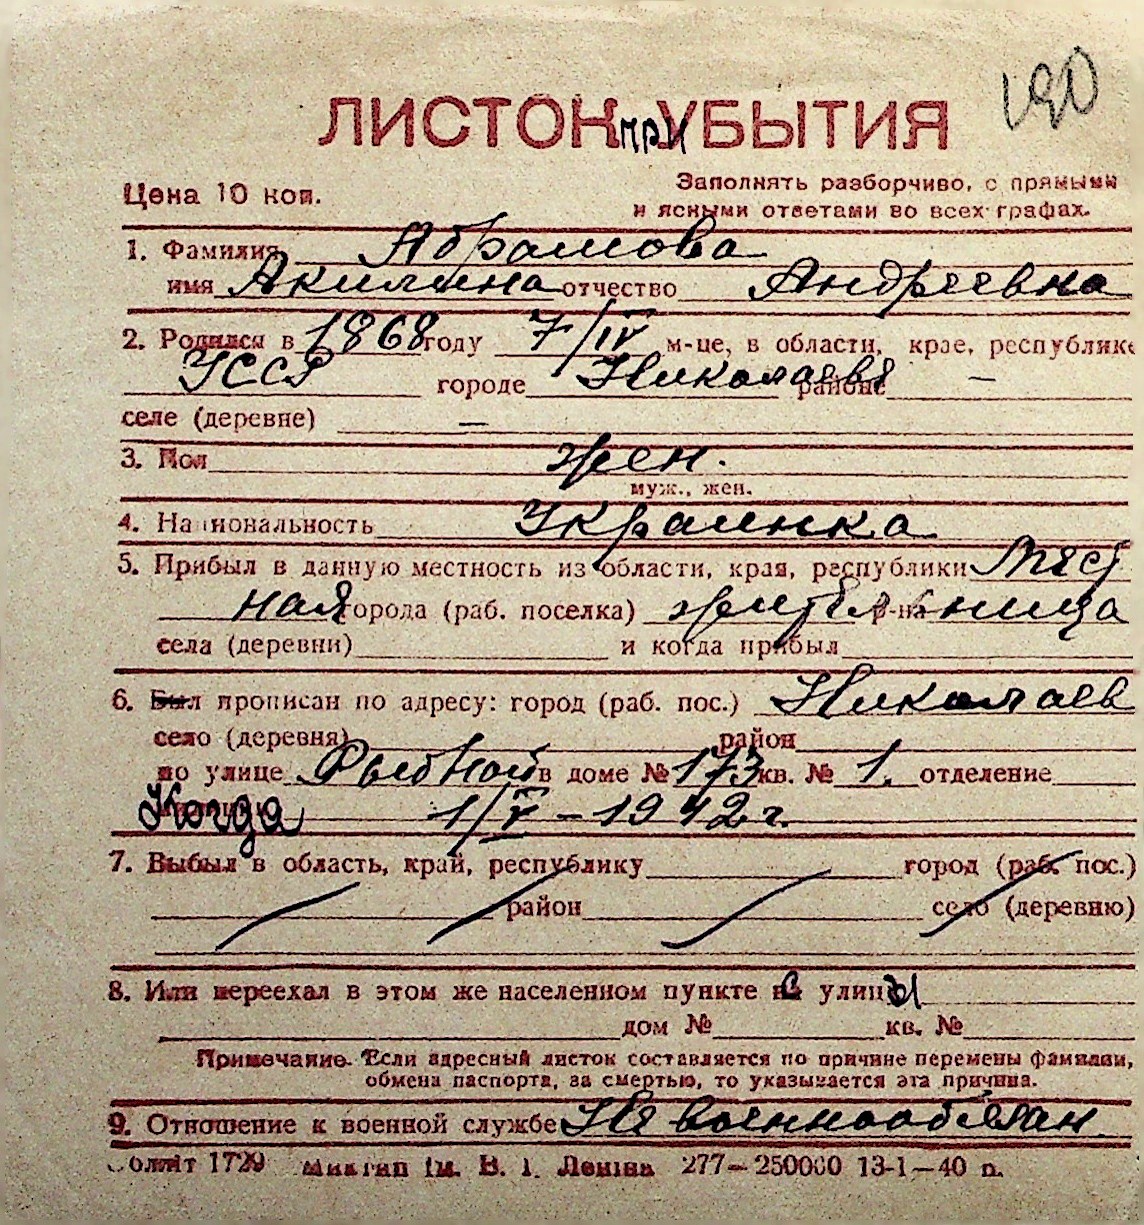 190
ЛИСТОК при УБЫТИЯ
Цена 10 коп.
Заполнять разборчиво, с прямыми
и ясными ответами во всех графах.
1. Фамилия Абрамова
имя Акилина отчество Андреевна
2. Родился в 1868 году 7/IV м-це, в области, крае, республике
УССР городе Николаеве районе —
селе (деревне) —
3. Пол жен.
муж., жен.
4. Национальность Украинка
5. Прибыл в данную местность из области, края, республики Мест
ная города (раб. поселка) жительница р-на
села (деревни) и когда прибыл
6. Был прописан по адресу: город (раб. пос.) Николаев
село (деревня) район
по улице Рыбной в доме № 173 кв. № 1. отделение
Когда 1/V – 1942 г.
7. Выбыл в область, край, республику город (раб. пос.)
район село (деревню)
8. Или переехал в этом же населенном пункте с улицы
дом № кв. №
Примечание. Если адресный листок составляется по причине перемены фамилии,
обмена паспорта, за смертью, то указывается эта причина.
9. Отношение к военной службе Не военнообязан
1729 ім. В. І. Леніна 277—250000 13-1—40 р.